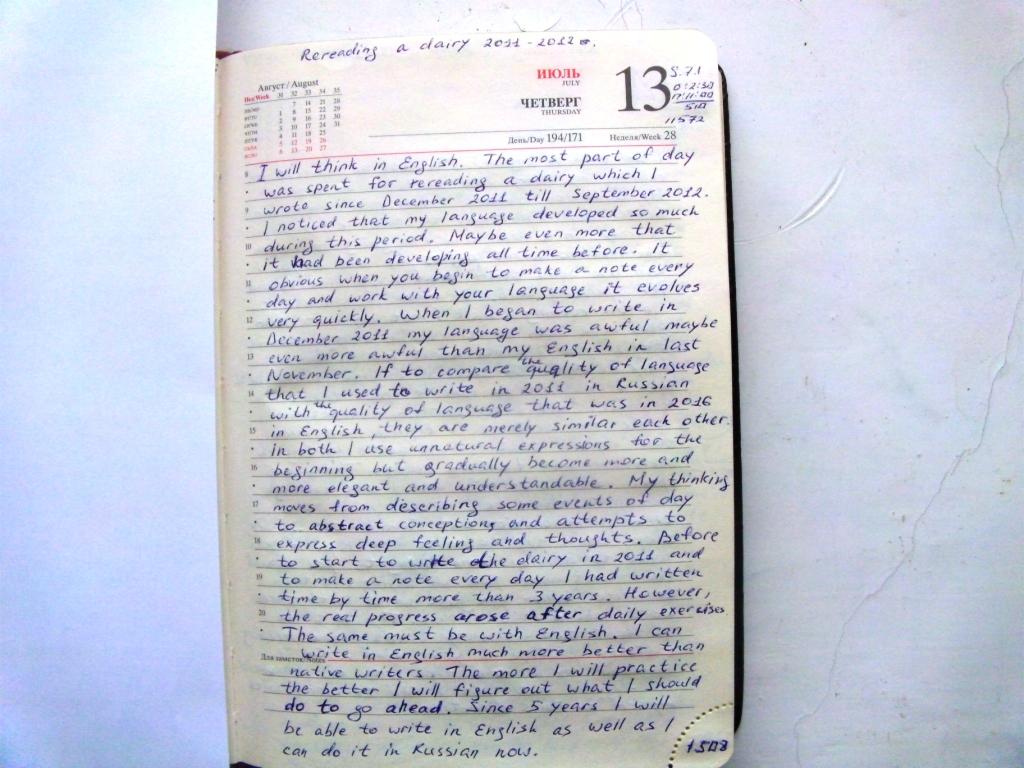 Rereading a dairy 2011-2012 г.
Август / August
Нед/Week 31 32 33 34 35
7 14 21 28
1 8 15 22 29
2 9 16 23 30
3 10 17 24 31
4 11 18 25
5 12 19 26
6 13 20 27
ИЮЛЬ
JULY
ЧЕТВЕРГ
THURSDAY
13
5.71
11572
День/Day 194/171
Неделя/Week 28
8 I will think in English. The most part of day
was spent for rereading a dairy which I
9 wrote since December 2011 till September 2012.
I noticed that my language developed so much
10 during this period. Maybe even more that
it had been developing all time before. It
11 obvious when you begin to make a note every
day and work with your language it evolves
12 very quickly. When I began to write in
December 2011 my language was awful maybe
13 even more awful than my English in last
November. If to compare the quality of language
14 that I used to write in 2011 in Russian
with the quality of language that was in 2016
15 in English, they are merely similar each other.
in both I use unnatural expressions for the
16 beginning but gradually become more and
more elegant and understandable. My thinking
17 moves from describing some events of day
to abstract conceptions and attempts to
18 express deep feeling and thoughts. Before
to start to write the dairy in 2011 and
19 to make a note every day I had written
time by time more than 3 years. However,
20 the real progress arose after daily exercises
The same must be with English. I can
Для заметок/Notes
write in English much more better than
native writers. The more I will practice
the better I will figure out what I should
do to go ahead. Since 5 years I will
be able to write in English as well as I
can do it in Russian now.
1508